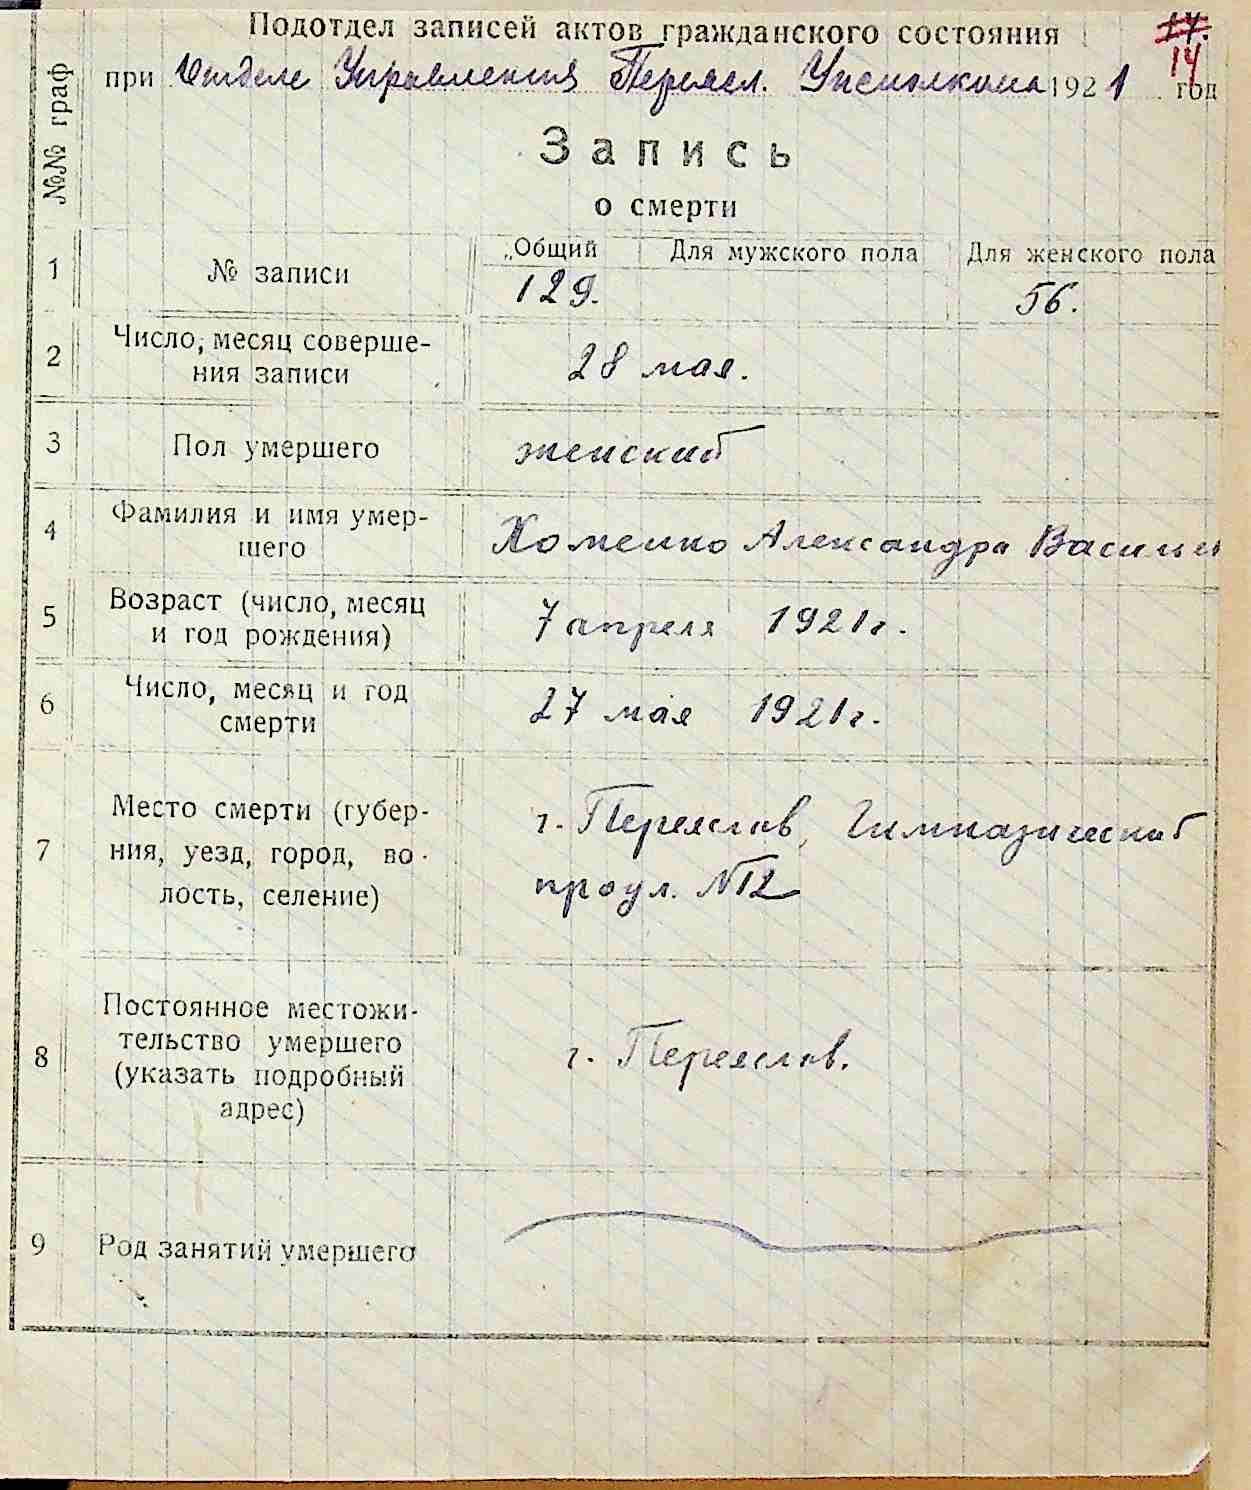 Подотдел записей актов гражданского состояния
14
при Отделе Управления Переясл. Уисполкома 1921 год
№№ граф
Запись
о смерти
1 № записи Общий Для мужского пола Для женского пола
129. 56.
2 Число, месяц соверше-
ния записи 28 мая.
3 Пол умершего женский
4 Фамилия и имя умер-
шего Хоменко Александра Васильев
5 Возраст (число, месяц
и год рождения) 7 апреля 1921г.
6 Число, месяц и год
смерти 27 мая 1921г.
7 Место смерти (губер-
ния, уезд, город, во-
лость, селение) г. Переяслав, Гимназический
проул. №12
8 Постоянное местожи-
тельство умершего
(указать подробный
адрес) г. Переяслав.
9 Род занятий умершего